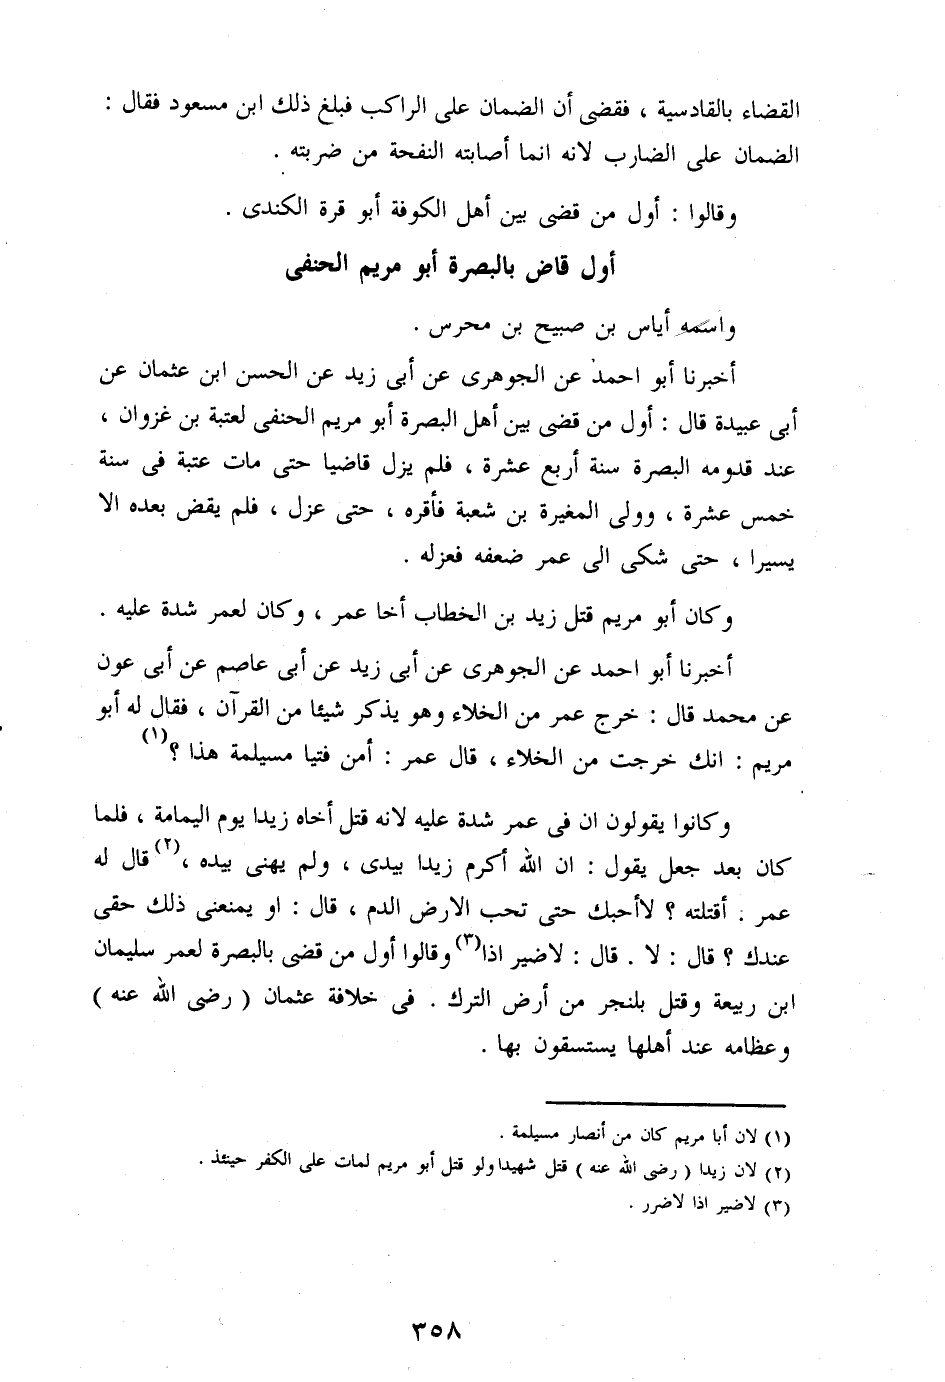 القضاء بالقادسية ، فقضى أن الضمان على الراكب فبلغ ذلك ابن مسعود فقال :
الضمان على الضارب لانه انما أصابته النفحة من ضربته .
وقالوا : أول من قضى بين أهل الكوفة أبو قرة الكندى .
أول قاض بالبصرة أبو مريم الحنفى
واسمه أياس بن صبيح بن محرس .
أخبرنا أبو احمد عن الجوهرى عن أبى زيد عن الحسن ابن عثمان عن
أبى عبيدة قال : أول من قضى بين أهل البصرة أبو مريم الحنفى لعتبة بن غزوان ،
عند قدومه البصرة سنة أربع عشرة ، فلم يزل قاضيا حتى مات عتبة فى سنة
خمس عشرة ، وولى المغيرة بن شعبة فأقره ، حتى عزل ، فلم يقض بعده الا
يسيرا ، حتى شكى الى عمر ضعفه فعزله .
وكان أبو مريم قتل زيد بن الخطاب أخا عمر ، وكان لعمر شدة عليه .
أخبرنا أبو احمد عن الجوهرى عن أبى زيد عن أبى عاصم عن أبى عون
عن محمد قال : خرج عمر من الخلاء وهو يذكر شيئا من القرآن ، فقال له أبو
مريم : انك خرجت من الخلاء ، قال عمر : أمن فتيا مسيلمة هذا ؟(١)
وكانوا يقولون ان فى عمر شدة عليه لانه قتل أخاه زيدا يوم اليمامة ، فلما
كان بعد جعل يقول : ان الله أكرم زيدا بيدى ، ولم يهنى بيده ،(٢) قال له
عمر : أقتلته ؟ لاأحبك حتى تحب الارض الدم ، قال : او يمنعنى ذلك حقى
عندك ؟ قال : لا . قال : لاضير اذا(٣) وقالوا أول من قضى بالبصرة لعمر سليمان
ابن ربيعة وقتل بلنجر من أرض الترك . فى خلافة عثمان ( رضى الله عنه )
وعظامه عند أهلها يستسقون بها .
(١) لان أبا مريم كان من أنصار مسيلمة .
(٢) لان زيدا ( رضى الله عنه ) قتل شهيدا ولو قتل أبو مريم لمات على الكفر حينئذ .
(٣) لاضير اذا لاضرر .
٣٥٨